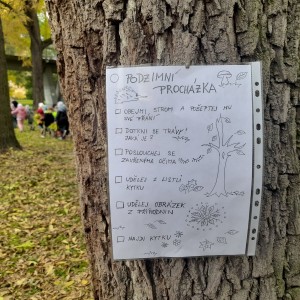 PODZIMNÍ
PROCHÁZKA
OBEJMI STROM A POŠEPTEJ MU
SVÉ PŘÁNÍ
DOTKNI SE TRÁVY
JAKÁ JE?
POSLOUCHEJ SE
ZAVŘENÝMA OČIMA
UDĚLEJ Z LISTÍ
KYTKU
UDĚLEJ OBRÁZEK
Z PŘÍRODNIN
NAJDI KYTKU